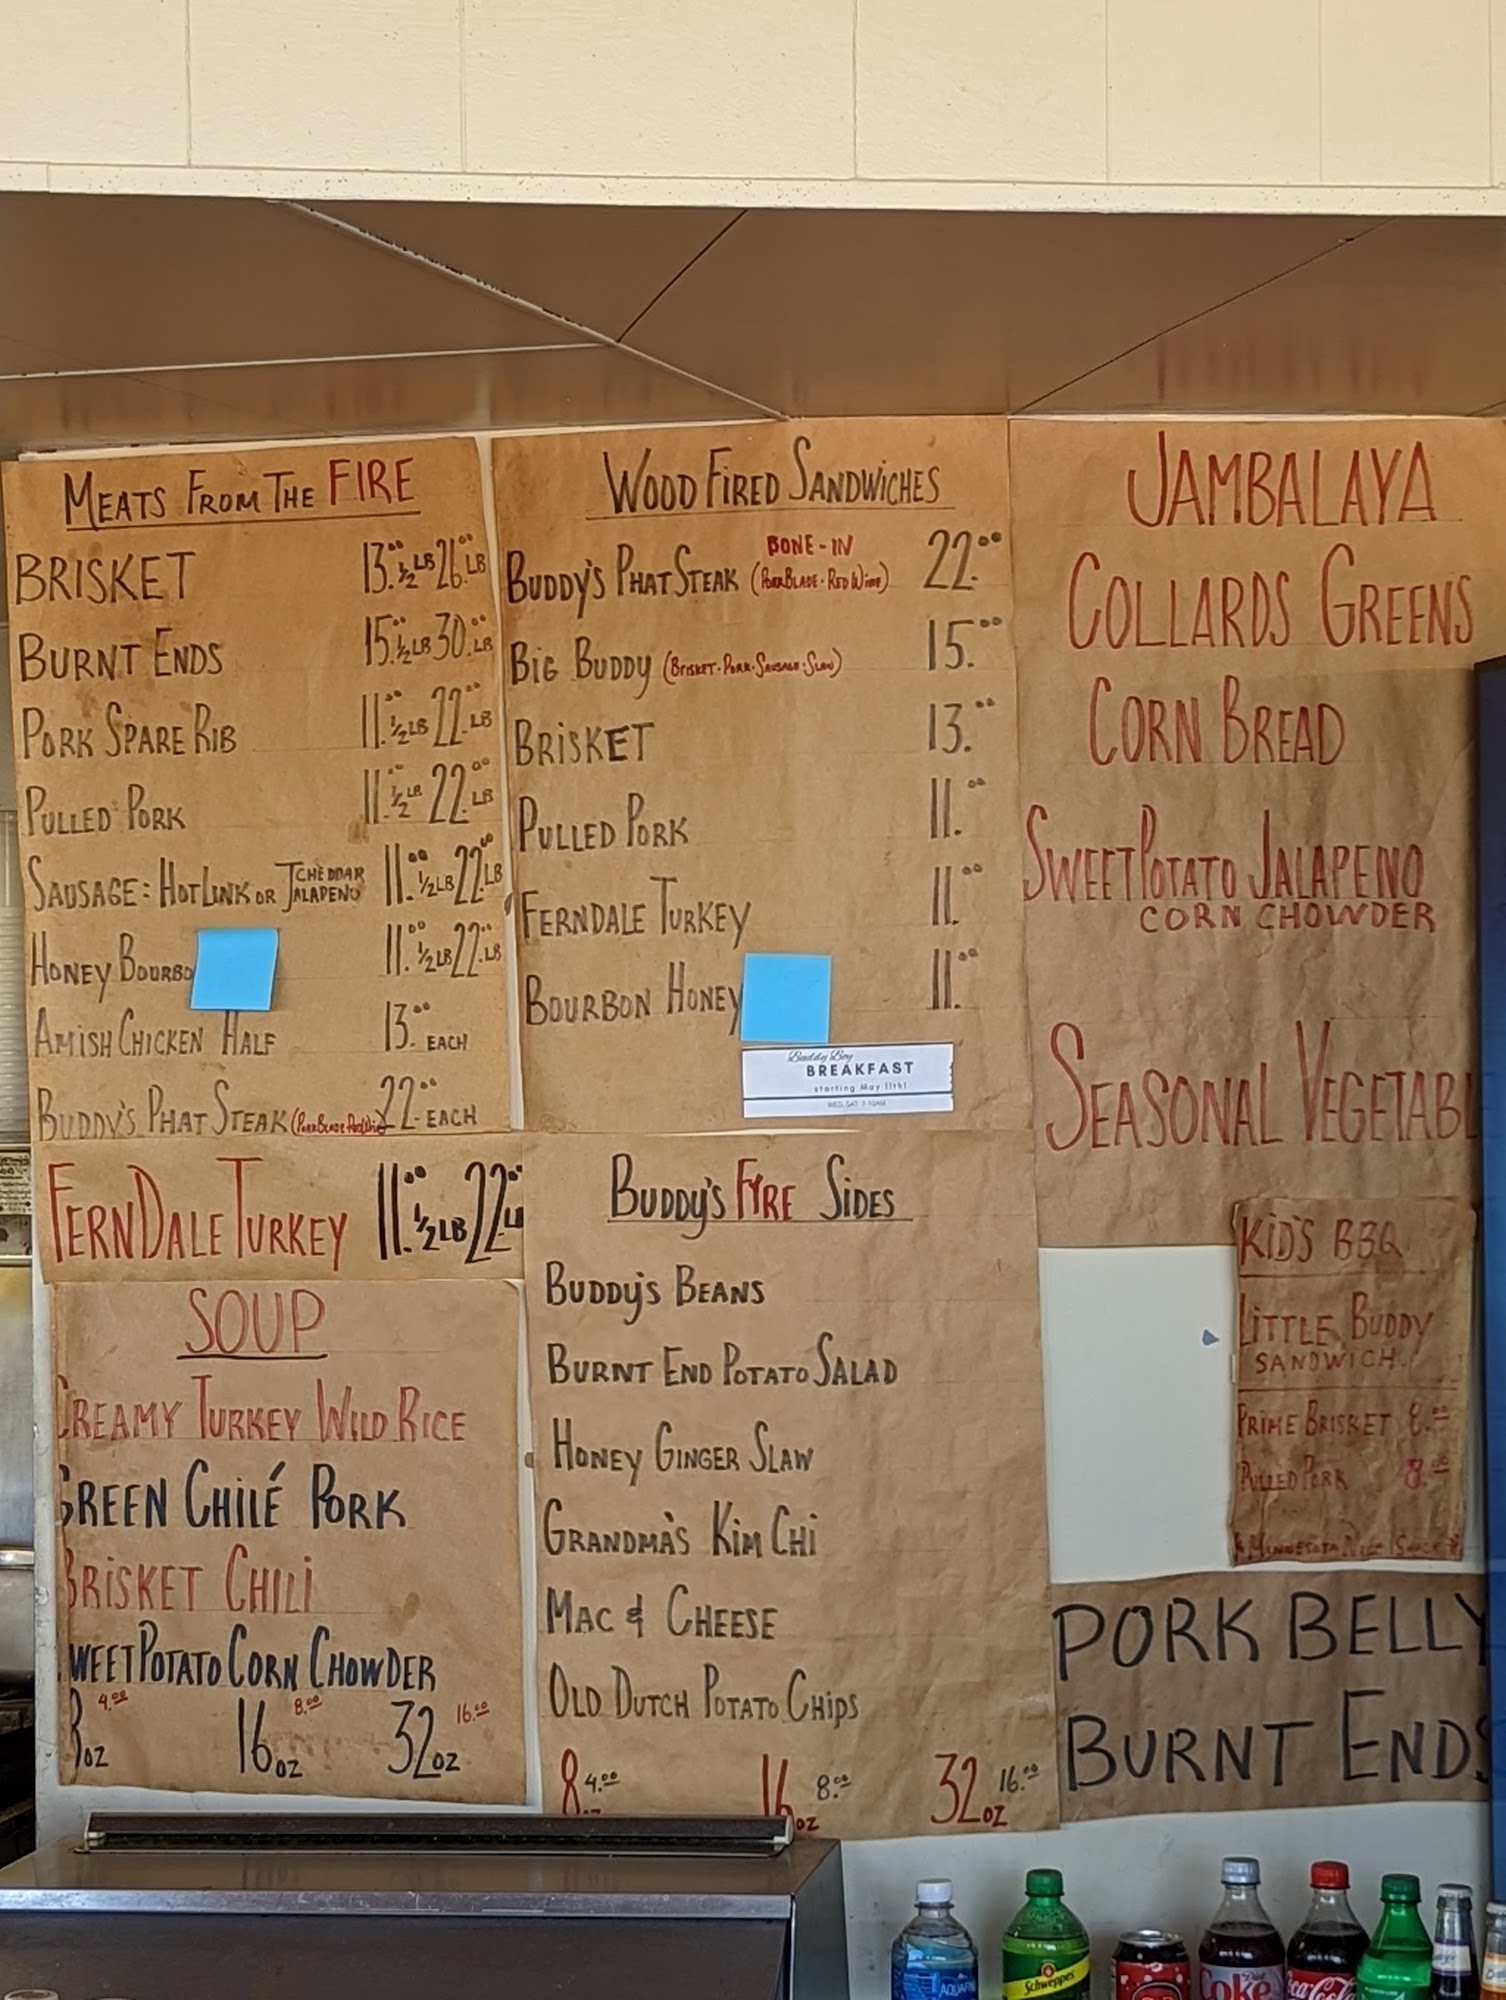 MEATS FROM THE FIRE
BRISKET 13.00 1/2 LB 26.00 LB
BURNT ENDS 15.00 1/2 LB 30.00 LB
PORK SPARE RIB 11.00 1/2 LB 22.00 LB
PULLED PORK 11.00 1/2 LB 22.00 LB
SAUSAGE: HOT LINK OR CHEDDAR JALAPENO 11.00 1/2 LB 22.00 LB
HONEY BOURBO 11.00 1/2 LB 22.00 LB
AMISH CHICKEN HALF 13.00 EACH
BUDDY'S PHAT STEAK (PORK BLADE RED WINE) 22.00 EACH
FERNDALE TURKEY 11.00 1/2 LB 22.00 LB
SOUP
CREAMY TURKEY WILD RICE
GREEN CHILÉ PORK
BRISKET CHILI
SWEET POTATO CORN CHOWDER
8 OZ 4.00 16 OZ 8.00 32 OZ 16.00
WOOD FIRED SANDWICHES
BUDDY'S PHAT STEAK BONE-IN (PORK BLADE - RED WINE) 22.00
BIG BUDDY (BRISKET - PORK - SAUSAGE - SLAW) 15.00
BRISKET 13.00
PULLED PORK 11.00
FERNDALE TURKEY 11.00
BOURBON HONEY 11.00
Buddy Boy
BREAKFAST
starting May 11th!
WED-SAT 7-10AM
BUDDY'S FYRE SIDES
BUDDY'S BEANS
BURNT END POTATO SALAD
HONEY GINGER SLAW
GRANDMA'S KIM CHI
MAC & CHEESE
OLD DUTCH POTATO CHIPS
8 OZ 4.00 16 OZ 8.00 32 OZ 16.00
JAMBALAYA
COLLARDS GREENS
CORN BREAD
SWEET POTATO JALAPENO
CORN CHOWDER
SEASONAL VEGETABL
KID'S BBQ
LITTLE BUDDY
SANDWICH
PRIME BRISKET 8.00
PULLED PORK 8.00
PORK BELLY
BURNT ENDS
AQUAFINA
Schweppes
Diet Coke
Coca-Cola